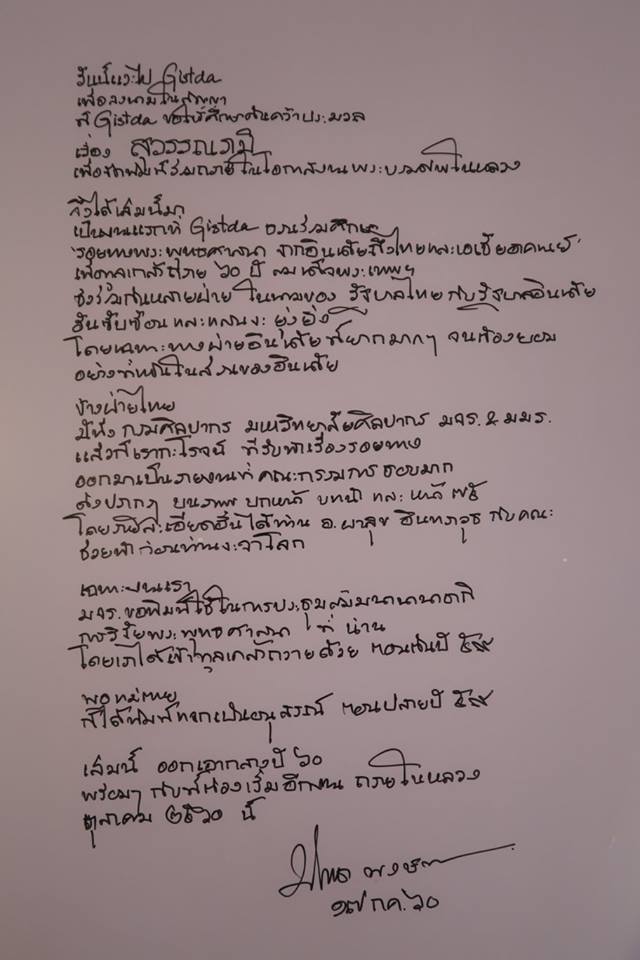 วันนี้จะไป Gistda
เพื่อลงนามในสัญญา
ที่ Gistda ขอให้ศึกษาค้นคว้าประมวล
เรื่อง สุวรรณภูมิ
เพื่อจัดพิมพ์ร่วมถวายในโอกาสงานพระบรมศพในหลวง
จึงได้เล่มนี้มา
เป็นงานแรกที่ Gistda ชวนร่วมศึกษา
รอยทางพระพุทธศาสนา จากอินเดียถึงไทยและเอเชียอาคเนย์
เพื่อทูลเกล้าถวาย ๖๐ ปี สมเด็จพระเทพฯ
ซึ่งร่วมกันหลายฝ่าย ในนามของ รัฐบาลไทย กับรัฐบาลอินเดีย
อันซับซ้อน และแสนจะ ยุ่งยิ่ง
โดยเฉพาะทางฝ่ายอินเดีย ที่ยากมากๆ จนต้องยอม
อย่างที่เห็นในส่วนของอินเดีย
ข้างฝ่ายไทย
มีทั้ง กรมศิลปากร มหาวิทยาลัยศิลปากร มจร. & มมร.
แล้วก็เราคะโรจน์ ที่รับทำเรื่องรอยทาง
ออกมาเป็นรายงานที่ คณะกรรมการ ชอบมาก
ดังปรากฏ บนภาพ ปกหน้า บทนำ และ หน้า ๗๕
โดยรายละเอียดอื่นได้ท่าน อ.ผาสุข อินทราวุธ กับคณะ
ช่วยทำก่อนท่านจะจากโลก
เฉพาะงานเรา
มจร. ขอพิมพ์ใช้ในการประชุมสัมมนานานาชาติ
การวิจัยพระพุทธศาสนา ที่ น่าน
โดยเราได้เข้าทูลเกล้าถวายด้วย ตอนต้นปี ๕๙
พอแม่ตาย
ก็ได้พิมพ์แจกเป็นอนุสรณ์ ตอนปลายปี ๕๙
เล่มนี้ ออกเอากลางปี ๖๐
พร้อมๆ กับที่ต้องเริ่มอีกงาน ถวายในหลวง
ตุลาคม ๒๕๖๐ นี้
๑๗ กค. ๖๐